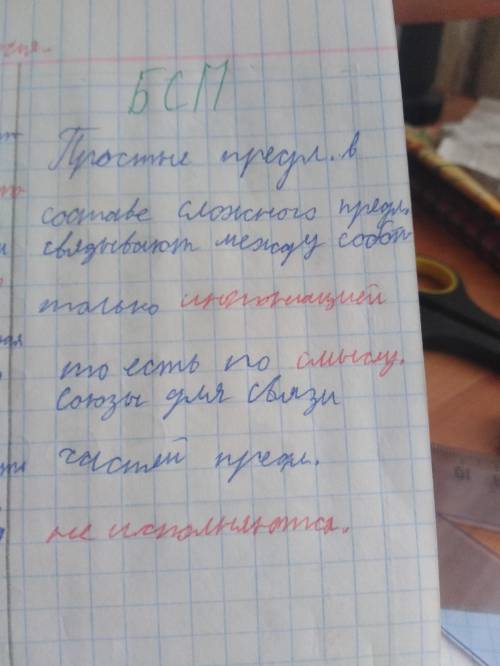 БСП
Простые предл. в
составе сложного предл.
связывают между собой
только интонацией
то есть по смыслу.
Союзы для связи
частей предл.
не исполняются.